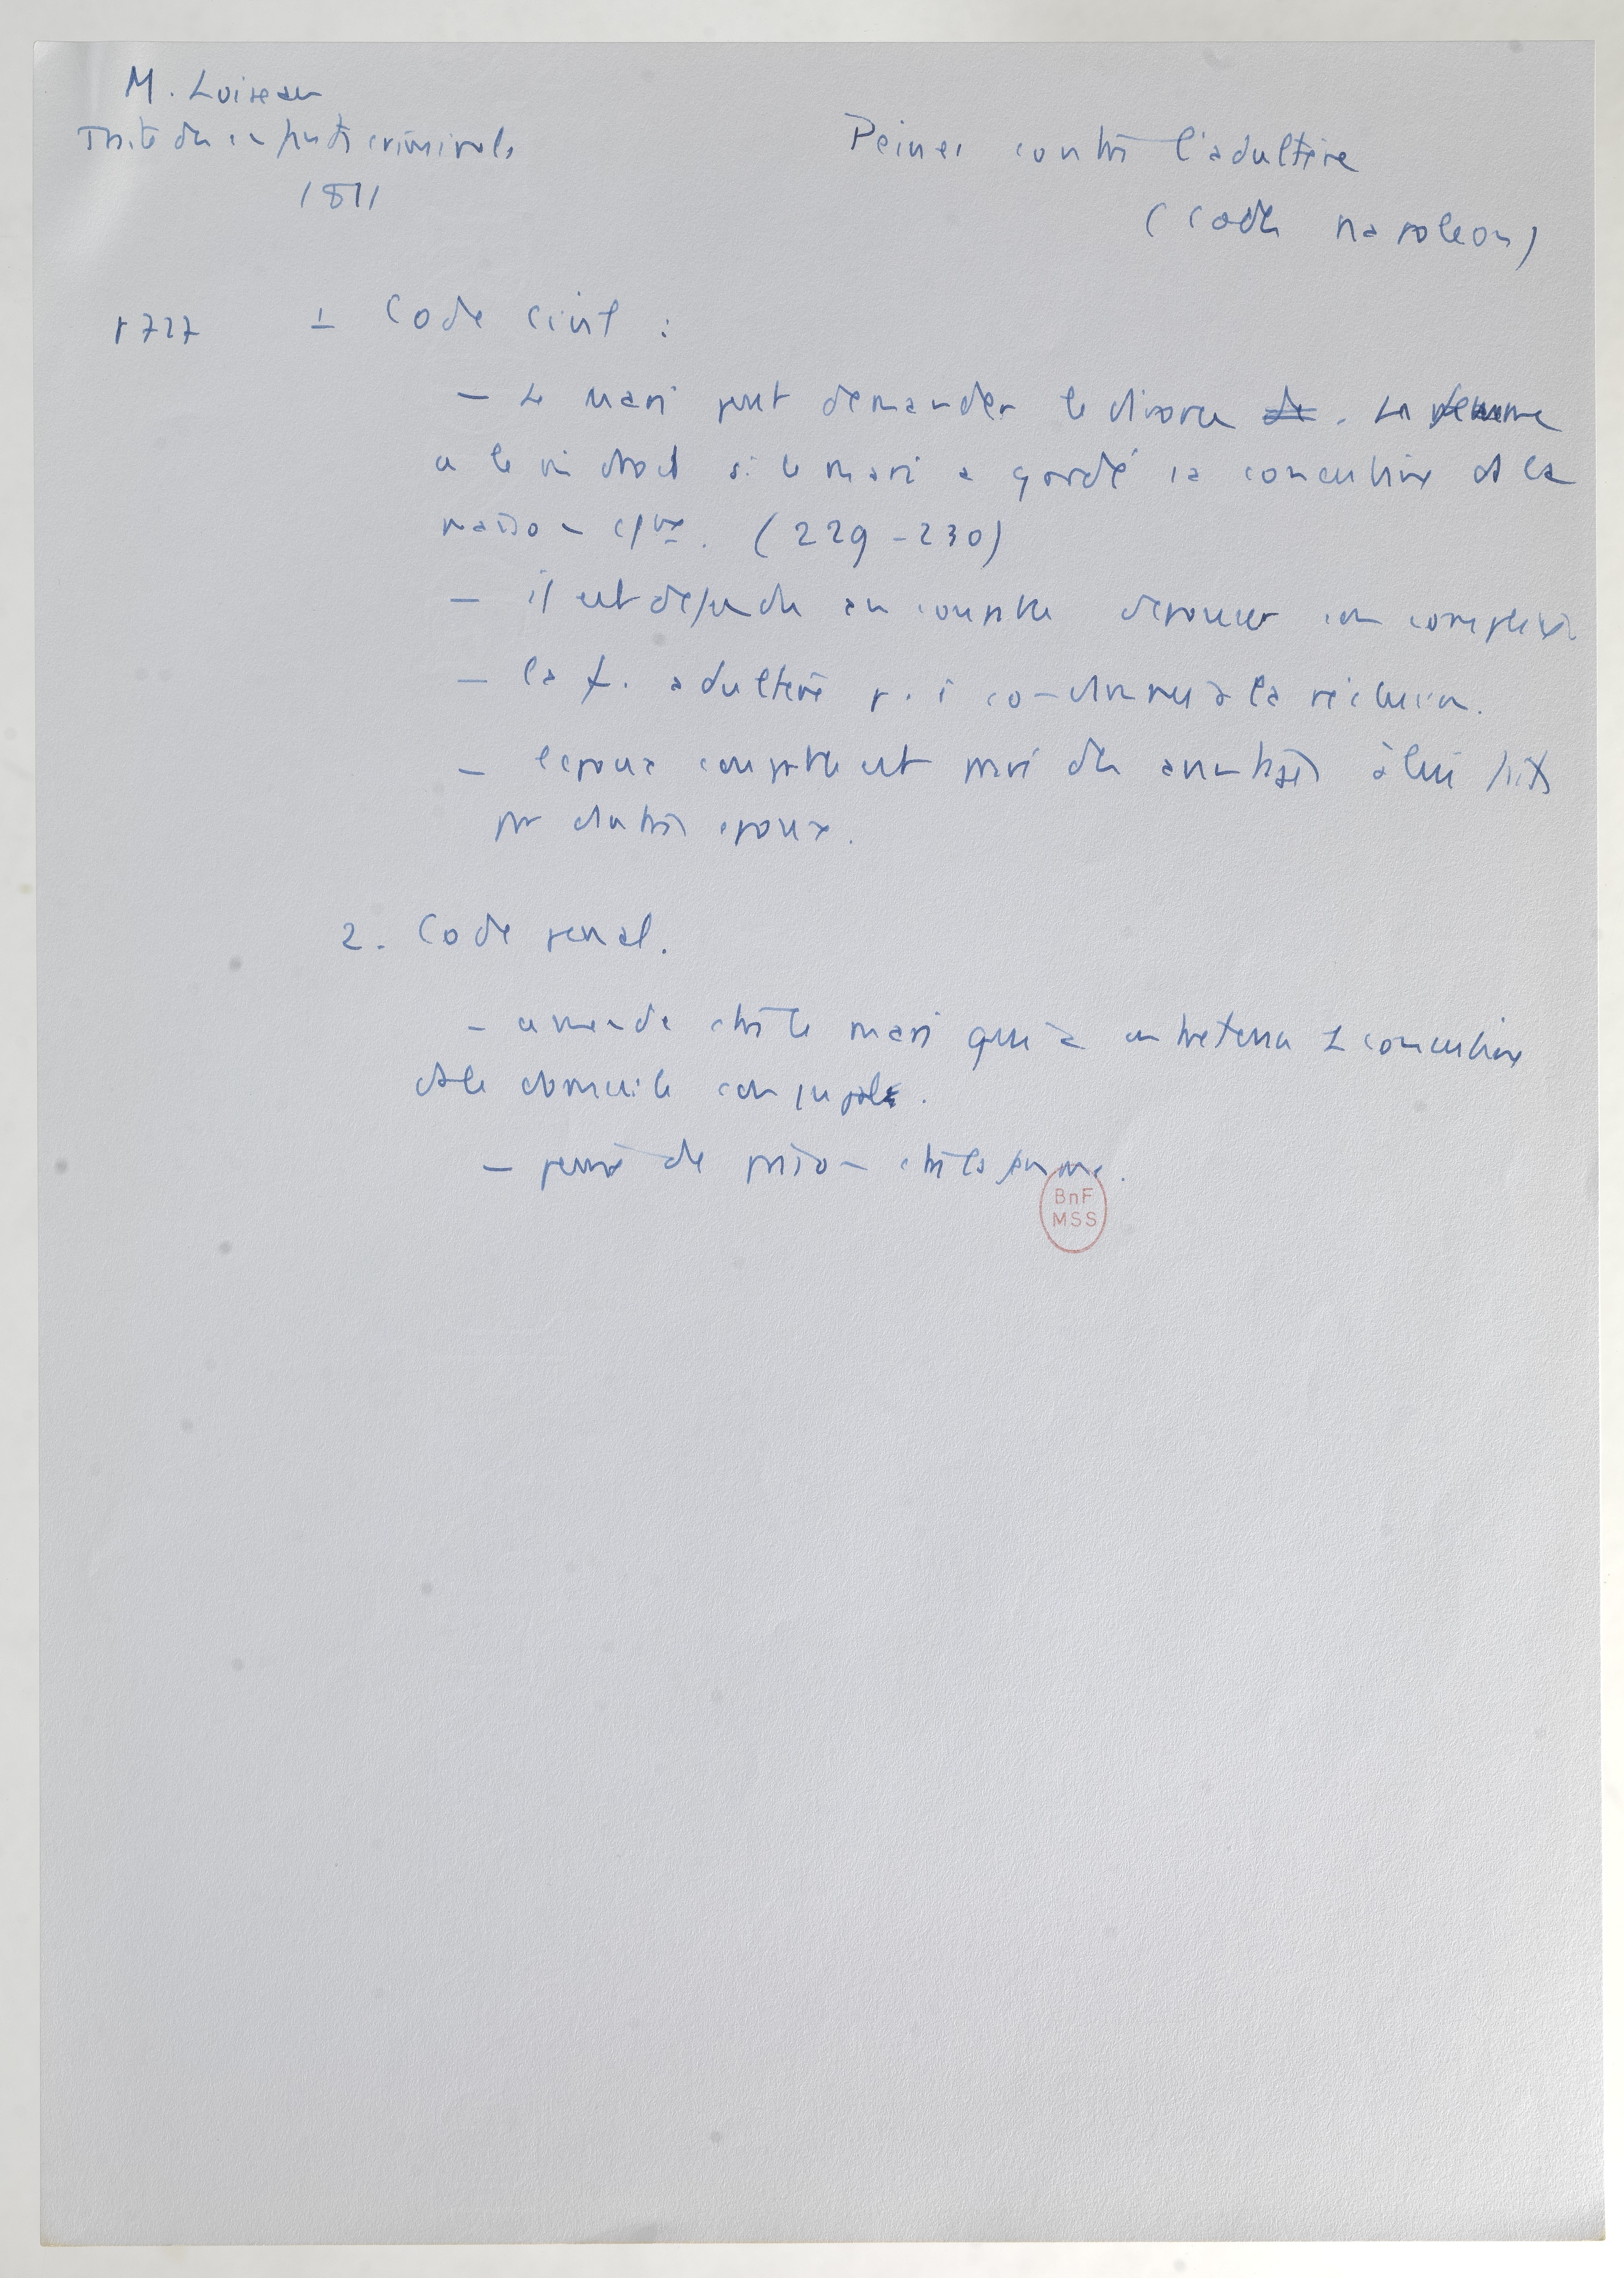 M. Loiseau
Traité des enfants criminels
1811
Peines contre l'adultère
(Code napoléon)
p 727 1 Code civil :
– Le mari peut demander le divorce de. La femme
a le m droit si le mari a gardé sa concubine ds la
maison cjgle. (229-230)
– il est défendu au coupable d'épouser son complice
– la f. adultère p. ê condamnée à la réclusion.
– l'époux coupable est privé des avantages à lui faits
par l'autre époux.
2. Code pénal.
– amende ctre le mari qui a entretenu 1 concubine
ds le domicile conjugal.
– peine de prison ctre la femme.
BnF
MSS